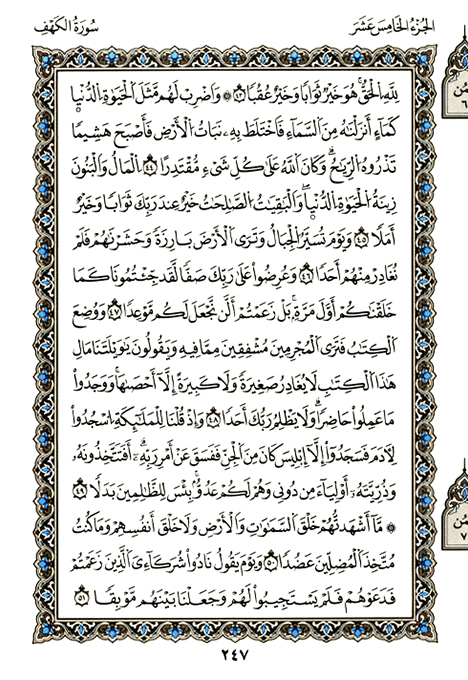 الجُزْءُ الخَامِسَ عَشَرَ
سُورَةُ الكَهْفِ
لِلَّهِ الْحَقُّ هُوَ خَيْرٌ ثَوَابًا وَخَيْرٌ عُقُبًا ٤٣ ۞ وَاضْرِبْ لَهُم مَّثَلَ الْحَيَوٰةِ الدُّنْيَا
كَمَاءٍ أَنزَلْنَٰهُ مِنَ السَّمَاءِ فَاخْتَلَطَ بِهِۦ نَبَاتُ الْأَرْضِ فَأَصْبَحَ هَشِيمًا
تَذْرُوهُ الرِّيَٰحُ وَكَانَ اللَّهُ عَلَىٰ كُلِّ شَيْءٍ مُّقْتَدِرًا ٤٤ الْمَالُ وَالْبَنُونَ
زِينَةُ الْحَيَوٰةِ الدُّنْيَا وَالْبَٰقِيَٰتُ الصَّٰلِحَٰتُ خَيْرٌ عِندَ رَبِّكَ ثَوَابًا وَخَيْرٌ
أَمَلًا ٤٥ وَيَوْمَ تُسَيَّرُ الْجِبَالُ وَتَرَى الْأَرْضَ بَارِزَةً وَحَشَرْنَٰهُمْ فَلَمْ
نُغَادِرْ مِنْهُمْ أَحَدًا ٤٦ وَعُرِضُوا عَلَىٰ رَبِّكَ صَفًّا لَّقَد جِّئْتُمُونَا كَمَا
خَلَقْنَٰكُمْ أَوَّلَ مَرَّةٍ بَلْ زَعَمْتُمْ أَلَّن نَّجْعَلَ لَكُم مَّوْعِدًا ٤٧ وَوُضِعَ
الْكِتَٰبُ فَتَرَى الْمُجْرِمِينَ مُشْفِقِينَ مِمَّا فِيهِ وَيَقُولُونَ يَٰوَيْلَتَنَا مَالِ
هَٰذَا الْكِتَٰبِ لَا يُغَادِرُ صَغِيرَةً وَلَا كَبِيرَةً إِلَّا أَحْصَىٰهَا وَوَجَدُوا
مَا عَمِلُوا حَاضِرًا وَلَا يَظْلِمُ رَبُّكَ أَحَدًا ٤٨ وَإِذْ قُلْنَا لِلْمَلَٰئِكَةِ اسْجُدُوا
لِأَدَمَ فَسَجَدُوا إِلَّا إِبْلِيسَ كَانَ مِنَ الْجِنِّ فَفَسَقَ عَنْ أَمْرِ رَبِّهِۦ أَفَتَتَّخِذُونَهُۥ
وَذُرِّيَّتَهُۥ أَوْلِيَاءَ مِن دُونِي وَهُمْ لَكُمْ عَدُوٌّ بِئْسَ لِلظَّٰلِمِينَ بَدَلًا ٤٩
۞ مَّا أَشْهَدتُّهُمْ خَلْقَ السَّمَٰوَٰتِ وَالْأَرْضِ وَلَا خَلْقَ أَنفُسِهِمْ وَمَا كُنتُ
مُتَّخِذَ الْمُضِلِّينَ عَضُدًا ٥٠ وَيَوْمَ يَقُولُ نَادُوا شُرَكَاءِيَ الَّذِينَ زَعَمْتُمْ
فَدَعَوْهُمْ فَلَمْ يَسْتَجِيبُوا لَهُمْ وَجَعَلْنَا بَيْنَهُم مَّوْبِقًا ٥١
٢٤٧